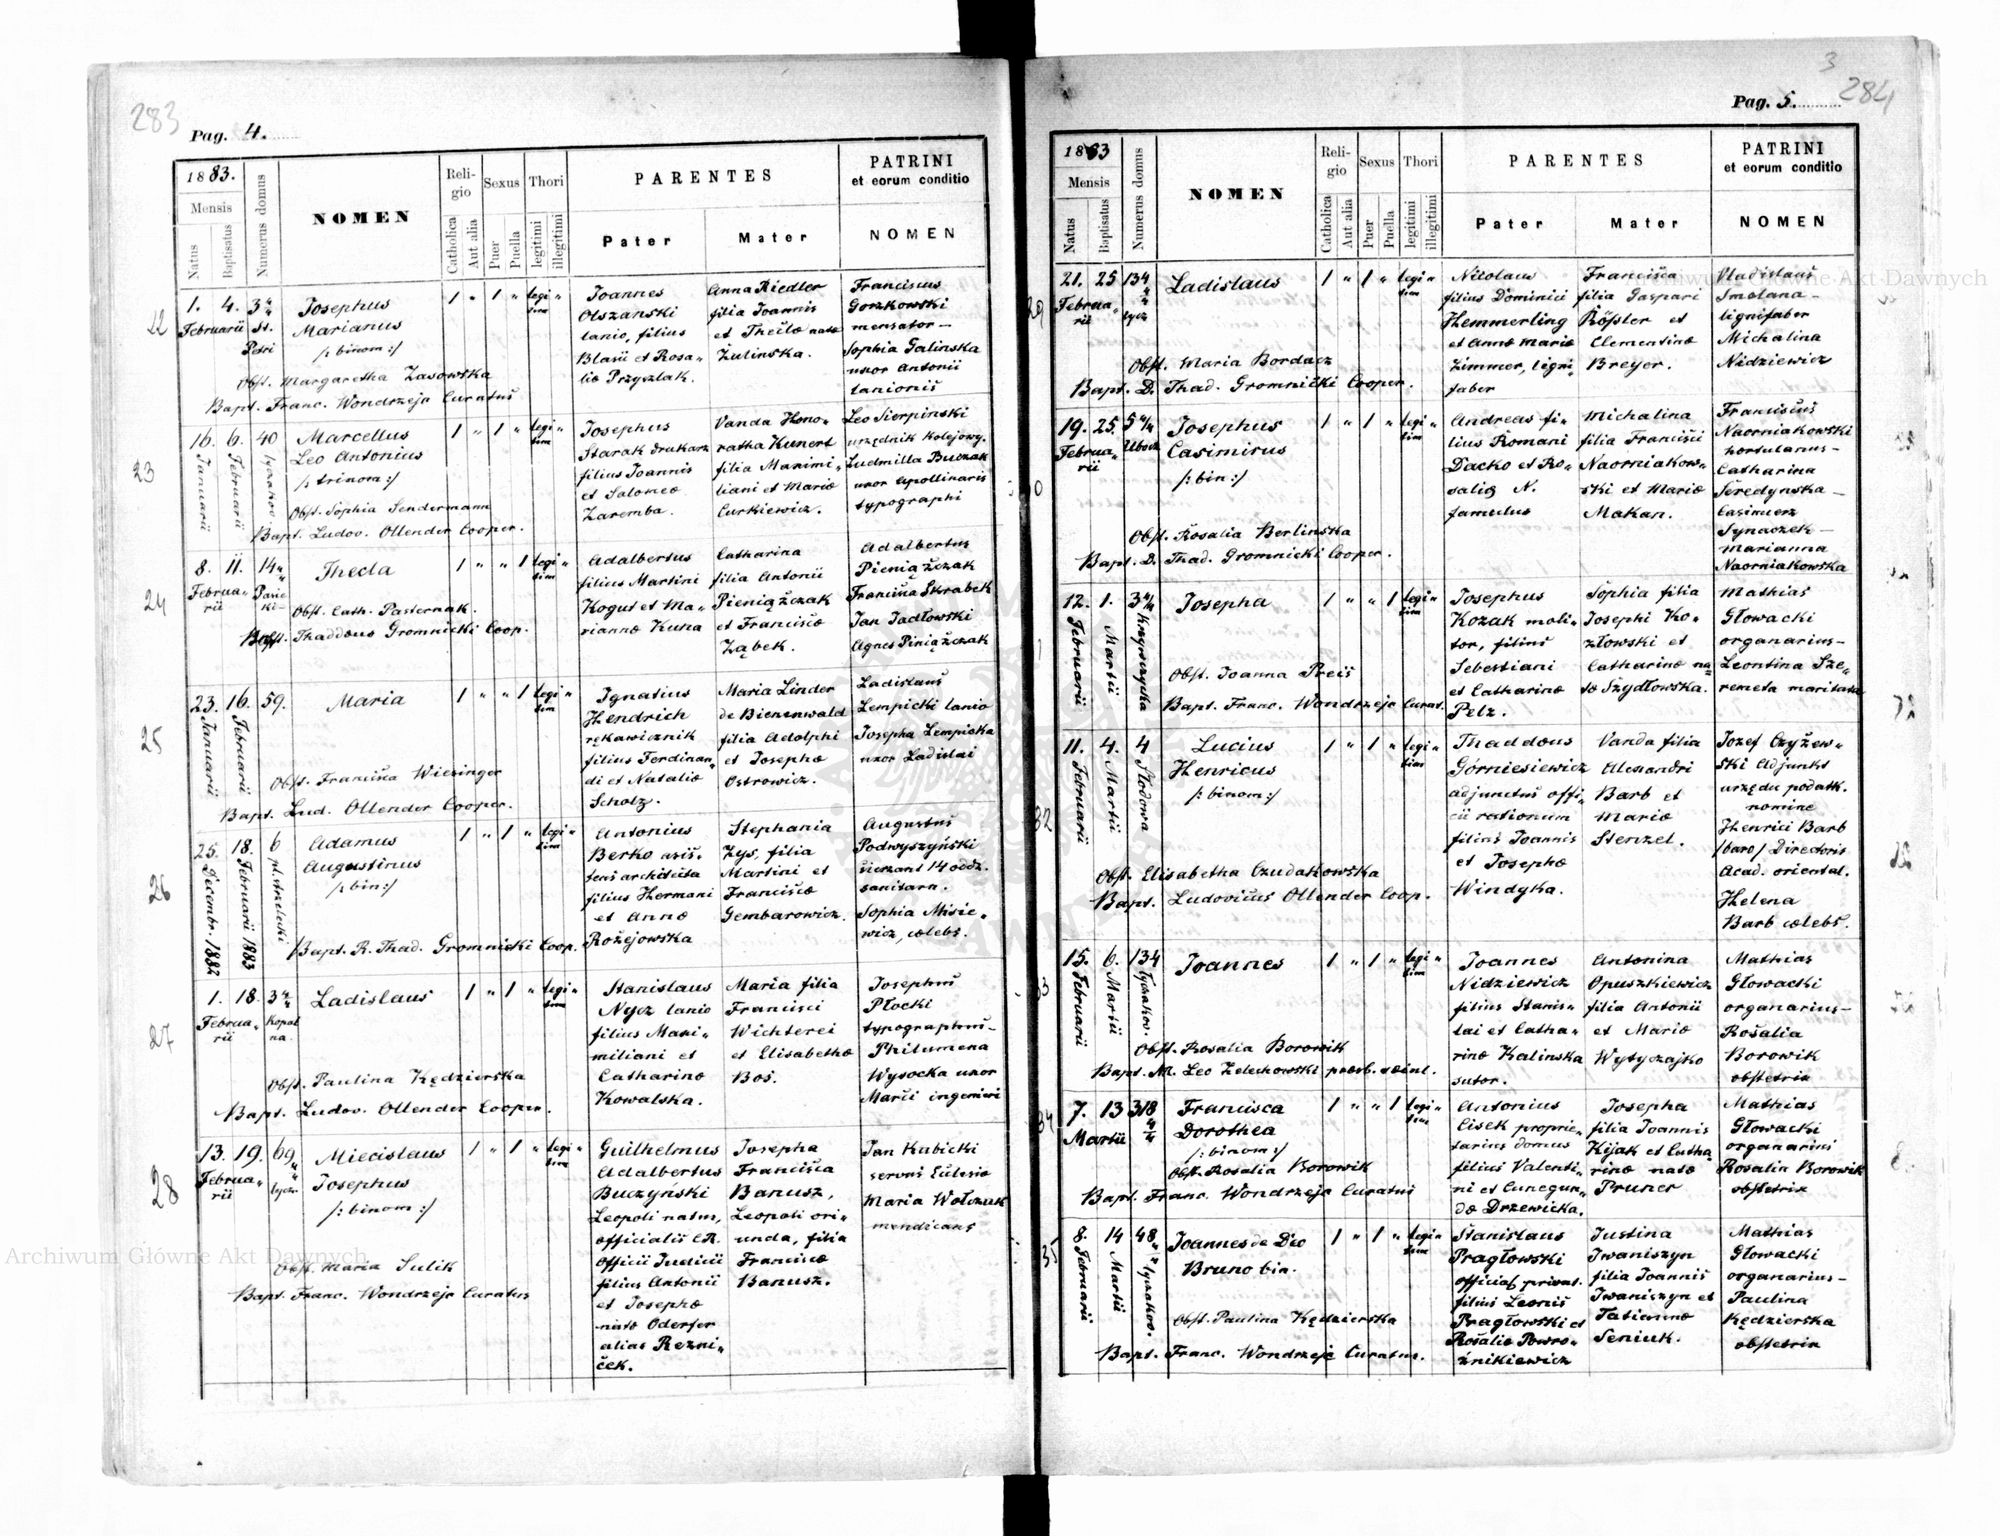 283
Pag. 4.
1883.
Mensis
Natus
Baptisatus
Numerus domus
NOMEN
Reli-
gio
Catholica
Aut alia
Sexus
Puer
Puella
Thori
legitimi
illegitimi
PARENTES
Pater
Mater
PATRINI
et eorum conditio
NOMEN
22
1. 4. 3
Februarii St.
Petri
Josephus
Marianus
/: binom :/
1 " 1 " legi "
tim
Obst. Margaretha Zasowska
Bapt. Franc. Wondrzeja Curatus
Joannes
Olszanski
lanio, filius
Blasii et Rosa-
liæ Przyszlak.
Anna Riedler
filia Joannis
et Theclæ natæ
Żulinska.
Franciscus
Gorzkowski
mensator –
Sophia Galinska
uxor Antonii
lanionis
23
16. 6. 40
Januarii
Februarii
Lyczakow.
Marcellus
Leo Antonius
/: trinom :/
1 " 1 " legi "
tim
Obst. Sophia Sendermann
Bapt. Ludov. Ollender Cooper.
Josephus
Starak drukarz
filius Joannis
et Salomeæ
Zaremba.
Vanda Hono-
ratha Kunert
filia Maximi-
liani et Mariæ
Curkiewicz.
Leo Sierpinski
urzędnik kolejowy.
Ludmilla Buczak
uxor Apollinaris
typographi
24
8. 11. 14
Februa-
rii
Panie
ki-
Thecla
1 " " 1 legi "
tim
Obst. Cath. Pasternak.
Bapt. Thaddæus Gromnicki Coop.
Adalbertus
filius Martini
Kogut et Ma-
riannæ Kuna
Catharina
filia Antonii
Pieniążczak
et Franciscæ
Ząbek.
Adalbertus
Pieniążczak
Francisca Skrabek
Jan Jadłowski
Agnes Piniążczak
25
23. 16. 59.
Januarii
Februarii
Maria
1 " " 1 legi "
tim
Obst. Francisca Wiesinger
Bapt. Lud. Ollender Cooper.
Ignatius
Hendrich
rękawicznik
filius Ferdinan-
di et Nataliæ
Scholz.
Maria Linder
de Bienenwald
filia Adolphi
et Josephæ
Ostrowicz.
Ladislaus
Lempicki lanio
Josepha Lempicka
uxor Ladislai
26
25. 18. 6
Decembr. 1882
Februarii 1883
pl. strzelecki
Adamus
Augustinus
/: bin :/
1 " 1 " legi "
tim
Bapt. R. Thad. Gromnicki Coop.
Antonius
Berko asis-
tens architecta
filius Hermani
et Annæ
Rożejowska
Stephania
Zys, filia
Martini et
Franciscæ
Gembarowicz.
Augustus
Podwyszyński
sierzant 14 oddz.
sanitarn.
Sophia Misie-
wicz, cælebs.
27
1. 18. 3
Februa-
rii
Kopal
na.
Ladislaus
1 " 1 " legi "
tim
Obst. Paulina Kędzierska
Bapt. Ludov. Ollender Cooper.
Stanislaus
Nycz lanio
filius Maxi-
miliani et
Catharinæ
Kowalska.
Maria filia
Francisci
Wichterei
et Elisabethæ
Bos.
Josephus
Płocki
typographus-
Philumena
Wysocka uxor
Marii ingenieri
28
13. 19. 69
Februa-
rii
Lycz.
Miecislaus
Josephus
/: binom :/
1 " 1 " legi "
tim
Obst. Maria Sulik
Bapt. Franc. Wondrzeja Curatus
Guilhelmus
Adalbertus
Buczyński
Leopoli natus,
officialis C.R.
Officii Judicii
filius Antonii
et Josephæ
natæ Oderfer
alias Rezni-
ček.
Josepha
Francisca
Banusz,
Leopoli ori-
unda, filia
Franciscæ
Banusz.
Jan Kubicki
servus Ecclesiæ
Maria Wołczuk
mendicans
3
284
Pag. 5.
1883
Mensis
Natus
Baptisatus
Numerus domus
NOMEN
Reli-
gio
Catholica
Aut alia
Sexus
Puer
Puella
Thori
legitimi
illegitimi
PARENTES
Pater
Mater
PATRINI
et eorum conditio
NOMEN
29
21. 25 134
Februa-
rii
Lycz
Ladislaus
1 " 1 " legi "
tim
Obst. Maria Bordacz
Bapt. D. Thad. Gromnicki Cooper.
Nikolaus
filius Dominici
Hemmerling
et Annæ Mariæ
Zimmer, ligni-
faber
Francisca
filia Gaspari
Rößler et
Clementinæ
Breyer.
Vladislaus
Smolana-
lignifaber
Michalina
Nidziewicz
19. 25. 5 4/4
Februa-
rii
Ubocz
Josephus
Casimirus
/: bin :/
1 " 1 " legi "
tim
Obst. Rosalia Berlinska
Bapt. D. Thad. Gromnicki Cooper.
Andreas fi-
lius Romani
Dacko et Ro-
salią N.
famulus
Michalina
filia Francisci
Naorniakow-
ski et Mariæ
Makan.
Franciscus
Naorniakowski
hortulanus-
Catharina
Seredynska-
Casimierz
Synaczek-
Marianna
Naorniakowska
12. 1. 3 4/4
Februarii
Martii
Krzywczycka
Josepha
1 " " 1 legi "
tim
Obst. Joanna Preis
Bapt. Franc. Wondrzeja Curat.
Josephus
Kozak moli-
tor, filius
Sebestiani
et Catharinæ
Pelz.
Sophia filia
Josephi Ko-
złowski et
Catharinæ na-
tæ Szydłowska.
Mathias
Głowacki
organarius-
Leontina Sze-
remeta maritata
32
11. 4. 4
Februarii
Martii
Słodowa
Lucius
Henricus
/: binom :/
1 " 1 " legi "
tim
Obst. Elisabetha Czudakowska
Bapt. Ludovicus Ollender Coop.
Thaddæus
Górniesiewicz
adjunctus offi-
cii rationum
filius Joannis
et Josephæ
Windyka.
Vanda filia
Alexandri
Barb et
Mariæ
Stenzel.
Jozef Czyżew-
ski Adjunkt
urzędu podatk.
nomine
Henrici Barb
/baro/ Directoris
Acad. oriental.
Helena
Barb cælebs.
15. 6. 134
Februarii
Martii
Lyczakow.
Joannes
1 " 1 " legi "
tim
Obst. Rosalia Borowik
Bapt. M. Leo Zelechowski presb. sæcul.
Joannes
Nidziewicz
filius Stanis-
lai et Catha-
rinæ Kalinska
sutor.
Antonina
Opuszkiewicz
filia Antonii
et Mariæ
Wytyczajko
Mathias
Głowacki
organarius-
Rosalia
Borowik
obstetrix
34
7. 13 318
4/4
Martii
Francisca
Dorothea
/: binom :/
1 " " 1 legi "
tim
Obst. Rosalia Borowik
Bapt. Franc. Wondrzeja Curatus
Antonius
Lisek proprie-
tarius domus
filius Valenti-
ni et Cunegun-
dæ Drzewicka.
Josepha
filia Joannis
Kijak et Catha-
rinæ natæ
Pruner
Mathias
Głowacki
organarius
Rosalia Borowik
obstetrix
35
8. 14 48
Februarii
Martii
Lyczakow.
Joannes de Deo
Bruno bin.
1 " 1 " legi "
tim
Obst. Paulina Kędzierska
Bapt. Franc. Wondrzeja Curatus.
Stanislaus
Pragłowski
official. privat.
filius Leonis
Pragłowski et
Rosaliæ Powro-
źnikiewicz
Justina
Iwaniszyn
filia Joannis
Iwaniszyn et
Tatiannæ
Seniuk.
Mathias
Głowacki
organarius-
Paulina
Kędzierska
obstetrix
Archiwum Główne Akt Dawnych
Archiwum Główne Akt Dawnych